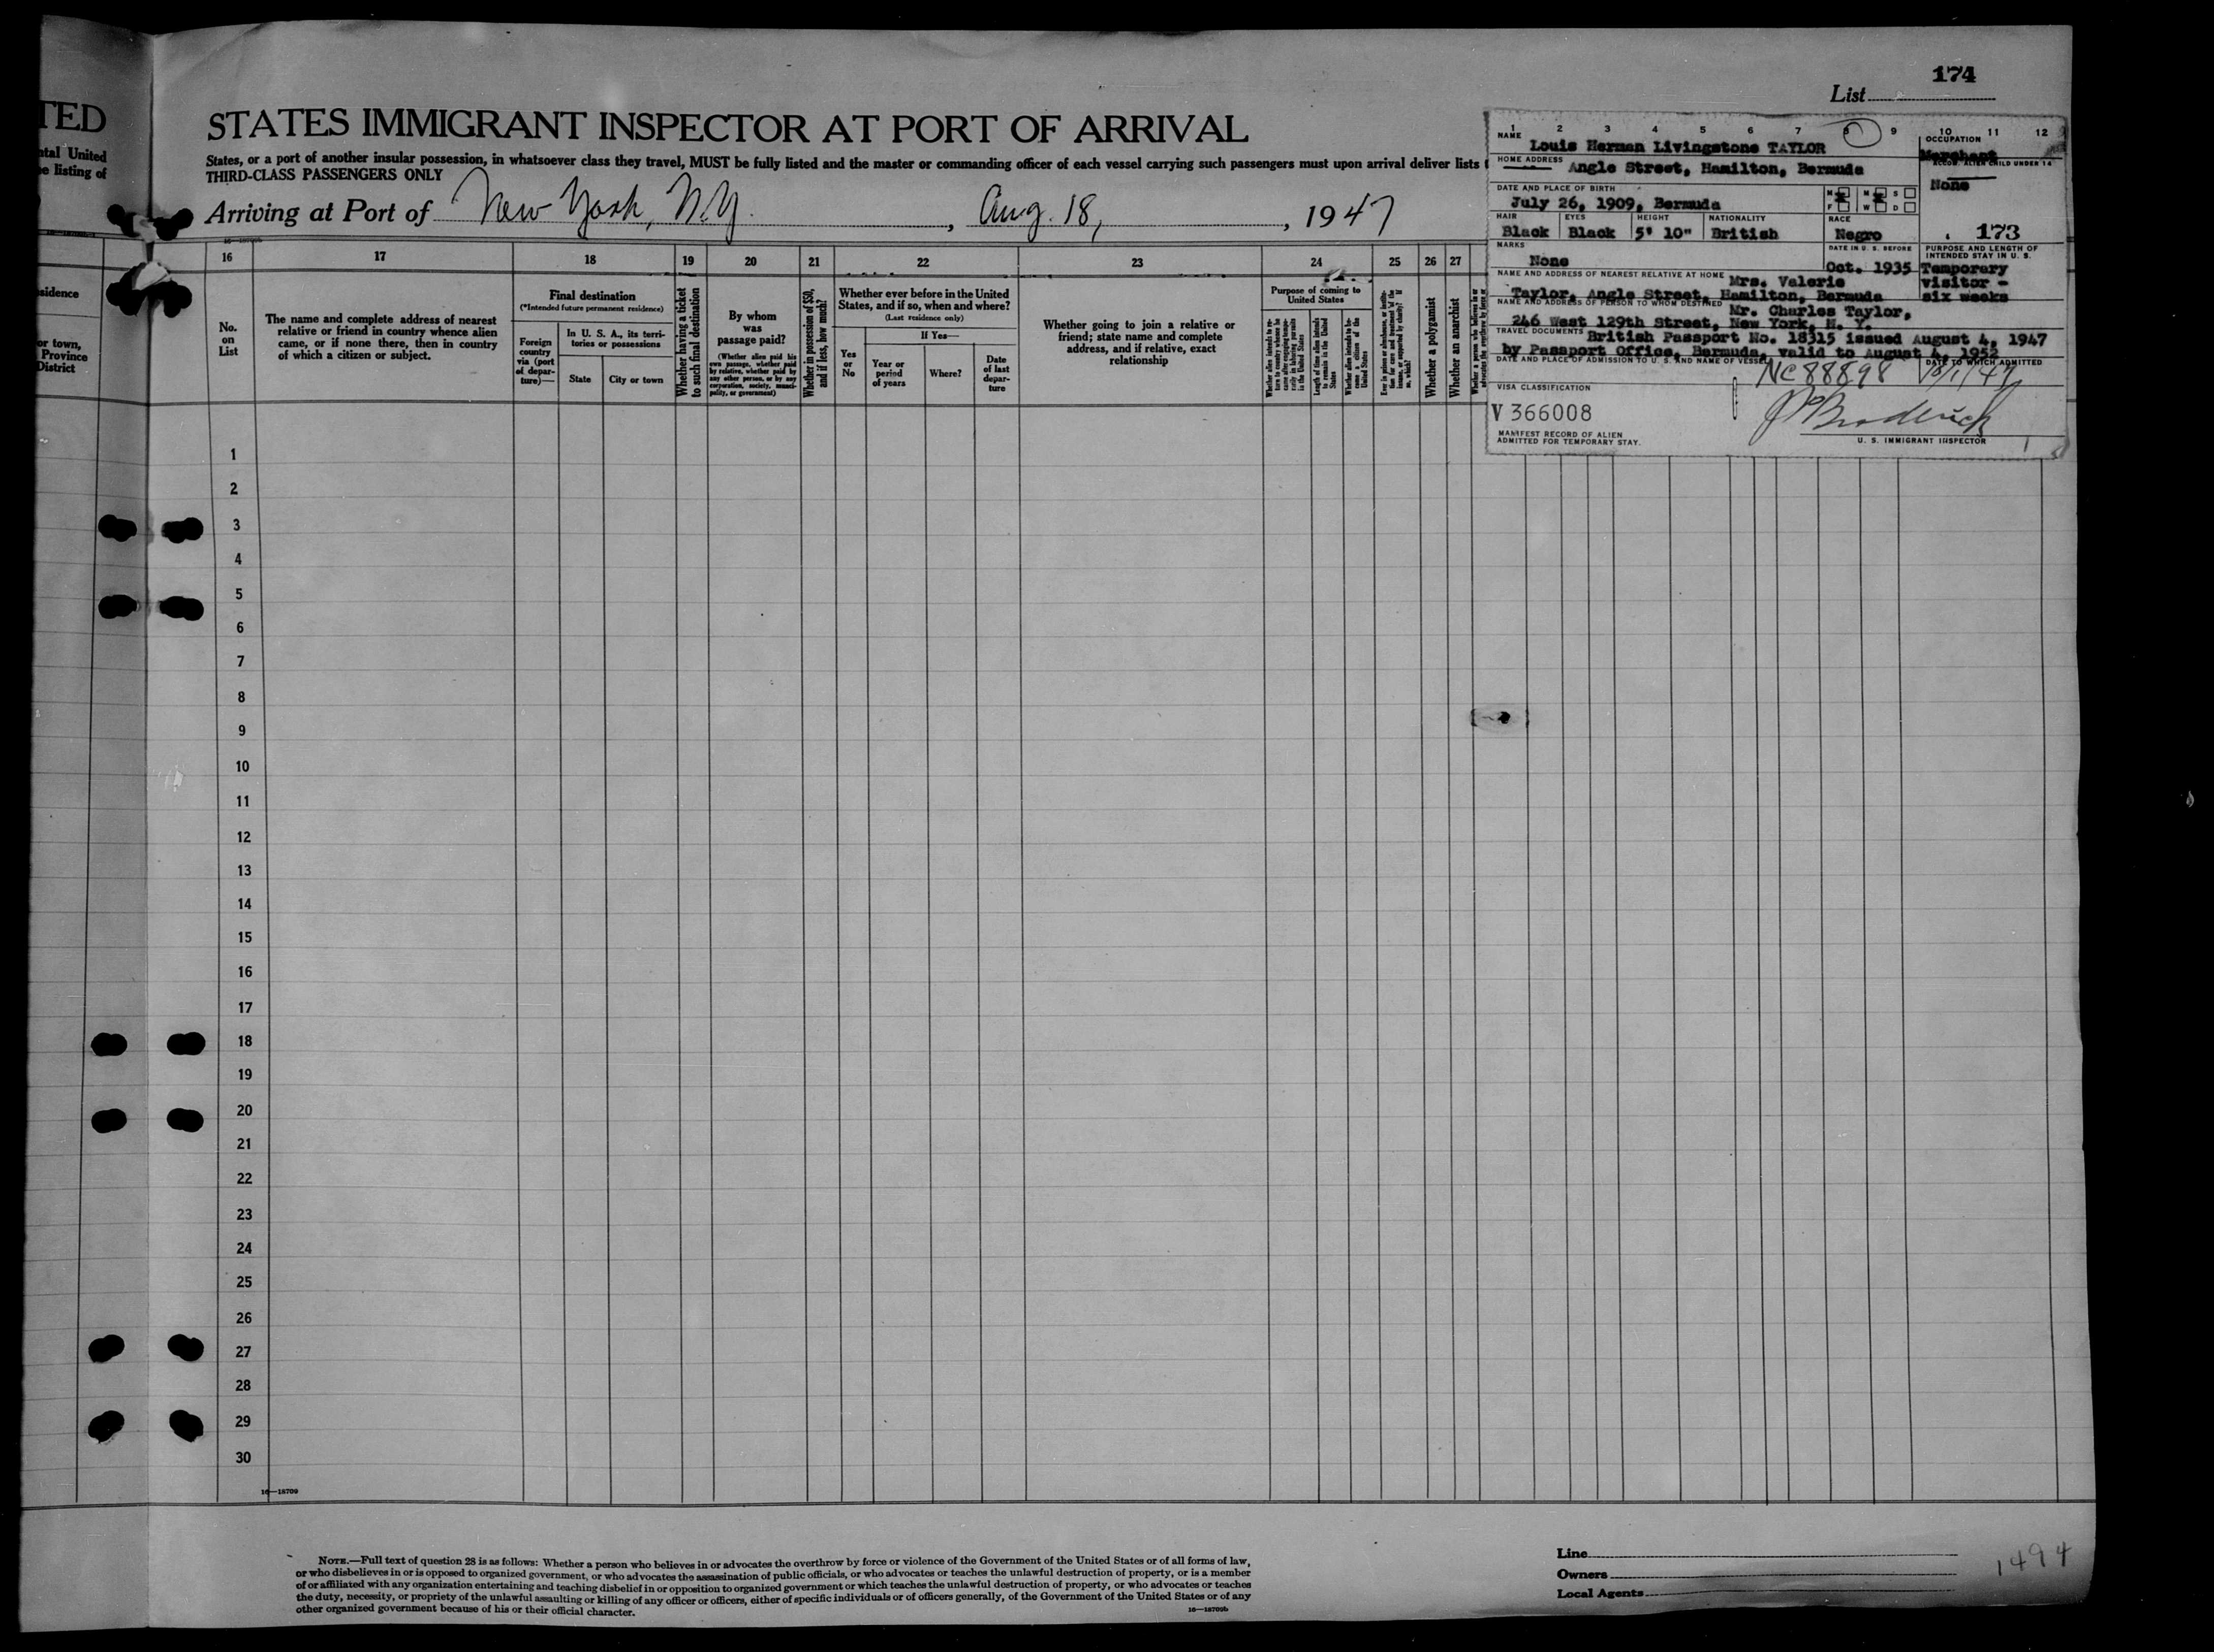 174
List
TED
STATES IMMIGRANT INSPECTOR AT PORT OF ARRIVAL
ntal United
e listing of
States, or a port of another insular possession, in whatsoever class they travel, MUST be fully listed and the master or commanding officer of each vessel carrying such passengers must upon arrival deliver lists
THIRD-CLASS PASSENGERS ONLY
Arriving at Port of New York, N.Y. , Aug. 18, , 1947
1 2 3 4 5 6 7 8 9 10 11 12
NAME
Louis Herman Livingstone TAYLOR
OCCUPATION
Merchant
HOME ADDRESS
Angle Street, Hamilton, Bermuda
ACCOM. ALIEN CHILD UNDER 14
None
DATE AND PLACE OF BIRTH
July 26, 1909, Bermuda
M M S
F W D
HAIR EYES HEIGHT NATIONALITY RACE
Black Black 5' 10" British Negro
173
MARKS
None
DATE IN U. S. BEFORE
Oct. 1935
PURPOSE AND LENGTH OF
INTENDED STAY IN U. S.
Temporary
visitor -
six weeks
NAME AND ADDRESS OF NEAREST RELATIVE AT HOME
Mrs. Valerie
Taylor, Angle Street, Hamilton, Bermuda
NAME AND ADDRESS OF PERSON TO WHOM DESTINED
Mr. Charles Taylor,
246 West 129th Street, New York, N. Y.
TRAVEL DOCUMENTS
British Passport No. 18315 issued August 4, 1947
by Passport Office, Bermuda, valid to August 4, 1952
DATE AND PLACE OF ADMISSION TO U. S. AND NAME OF VESSEL
NC 88898
DATE TO WHICH ADMITTED
VISA CLASSIFICATION
V 366008
JP Broderick
MANIFEST RECORD OF ALIEN
ADMITTED FOR TEMPORARY STAY.
U. S. IMMIGRANT INSPECTOR
16 17 18 19 20 21 22 23 24 25 26 27
sidence
or town,
Province
District
No.
on
List
The name and complete address of nearest
relative or friend in country whence alien
came, or if none there, then in country
of which a citizen or subject.
Final destination
(*Intended future permanent residence)
Foreign
country
via (port
of depar-
ture)—
In U. S. A., its terri-
tories or possessions
State
City or town
Whether having a ticket
to such final destination
By whom
was
passage paid?
(Whether alien paid his
own passage, whether paid
by relative, whether paid by
any other person, or by any
corporation, society, munici-
pality, or government)
Whether in possession of $50,
and if less, how much?
Whether ever before in the United
States, and if so, when and where?
(Last residence only)
Yes
or
No
If Yes—
Year or
period
of years
Where?
Date
of last
depar-
ture
Whether going to join a relative or
friend; state name and complete
address, and if relative, exact
relationship
Purpose of coming to
United States
Length of time alien intends
to remain in the United
States
Whether alien intends to be-
come a citizen of the
United States
Whether a polygamist
Whether an anarchist
1
2
3
4
5
6
7
8
9
10
11
12
13
14
15
16
17
18
19
20
21
22
23
24
25
26
27
28
29
30
16—18709
NOTE.—Full text of question 28 is as follows: Whether a person who believes in or advocates the overthrow by force or violence of the Government of the United States or of all forms of law,
or who disbelieves in or is opposed to organized government, or who advocates the assassination of public officials, or who advocates or teaches the unlawful destruction of property, or is a member
of or affiliated with any organization entertaining and teaching disbelief in or opposition to organized government or which teaches the unlawful destruction of property, or who advocates or teaches
the duty, necessity, or propriety of the unlawful assaulting or killing of any officer or officers, either of specific individuals or of officers generally, of the Government of the United States or of any
other organized government because of his or their official character.
16—18709b
Line
Owners
Local Agents
1494